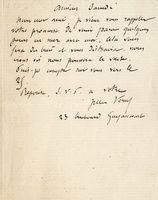 Amiens Samedi
Mon cher ami, je viens vous rappeler
votre promesse de venir passer quelques
jours en mer avec moi. Cela vous
fera du bien et vous distraira. nous
irons où nous poussera le vent.
Puis-je compter sur vous vers le
25.
Réponse S.V.P. à votre
Jules Verne
23 boulevard Guyencourt